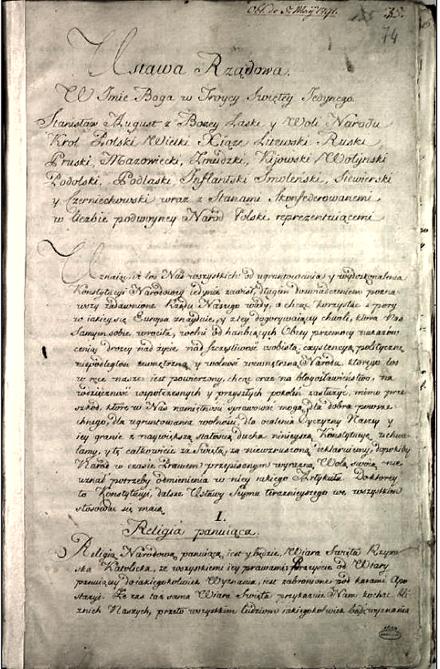 Obl. do 5. Maij 1791.
74
Ustawa Rządowa.
W Imie Boga w Troycy Swiętey Jedynego.
Stanisław August z Bozey Łaski y Woli Narodu
Krol Polski Wielki Xiąze Litewski Ruski
Pruski, Mazowiecki, Zmudzki, Kijowski Wołynski
Podolski, Podlaski Inflantski Smolenski, Siewierski
y Czerniechowski wraz z Stanami Skonfederowanemi
w liczbie podwoyney Narod Polski reprezentuiącemi
Uznaiąc, iz los Nas wszystkich od ugruntowania y wydoskonalenia
Konstytucyi Narodowey iedynie zawisł, długim doswiadczeniem pozna-
wszy zadawnione Rządu Naszego wady, a chcąc korzystac z pory
w iakiey się Europa znayduie, y z tey dogorywaiącey chwili, ktora Nas
Samym sobie wrociła, wolni od hanbiących Obcey przemocy nakazow
ceniąc drozey nad zycie, nad szczęsliwosc osobistą, exystencyą polityczną
niepodległosc zewnętrzną y wolnosc wewnętrzną Narodu, ktorego los
w ręce nasze iest powierzony, chcąc oraz na błogosławienstwo, na
wdzięcznosc wspołczesnych y przyszłych pokolen zasłuzyc, mimo prze-
szkod, ktore w Nas namiętnosci sprawowac mogą, dla dobra powsze-
chnego, dla ugruntowania wolnosci, dla ocalenia Oyczyzny Naszey y
iey granic z naywiększą stałoscią ducha ninieyszą Konstytucyę uchwa-
lamy, y tę całkowicie za swiętą, za niewzruszoną deklaruiemy, dopokiby
Narod w czasie Prawem przepisanym wyrazną Wolą swoią nie
uznał potrzeby odmienienia w niey iakiego Artykułu. Do ktorey
to Konstytucyi, dalsze Ustawy Seymu teraznieyszego we wszystkim
stosowac się maią.
I.
Religia panuiąca.
Religią Narodową panuiącą, iest y będzie, Wiara Swięta Rzym-
ska Katolicka, ze wszystkiemi iey prawami. Przeyscie od Wiary
panuiącey do iakiegokolwiek Wyznania, iest zabronione pod karami Apo-
stazyi. Ze zas ta sama Wiara Swięta przykazuie Nam kochac bli-
znich Naszych, przeto wszystkim ludziom iakiegokolwiek bądz wyznania